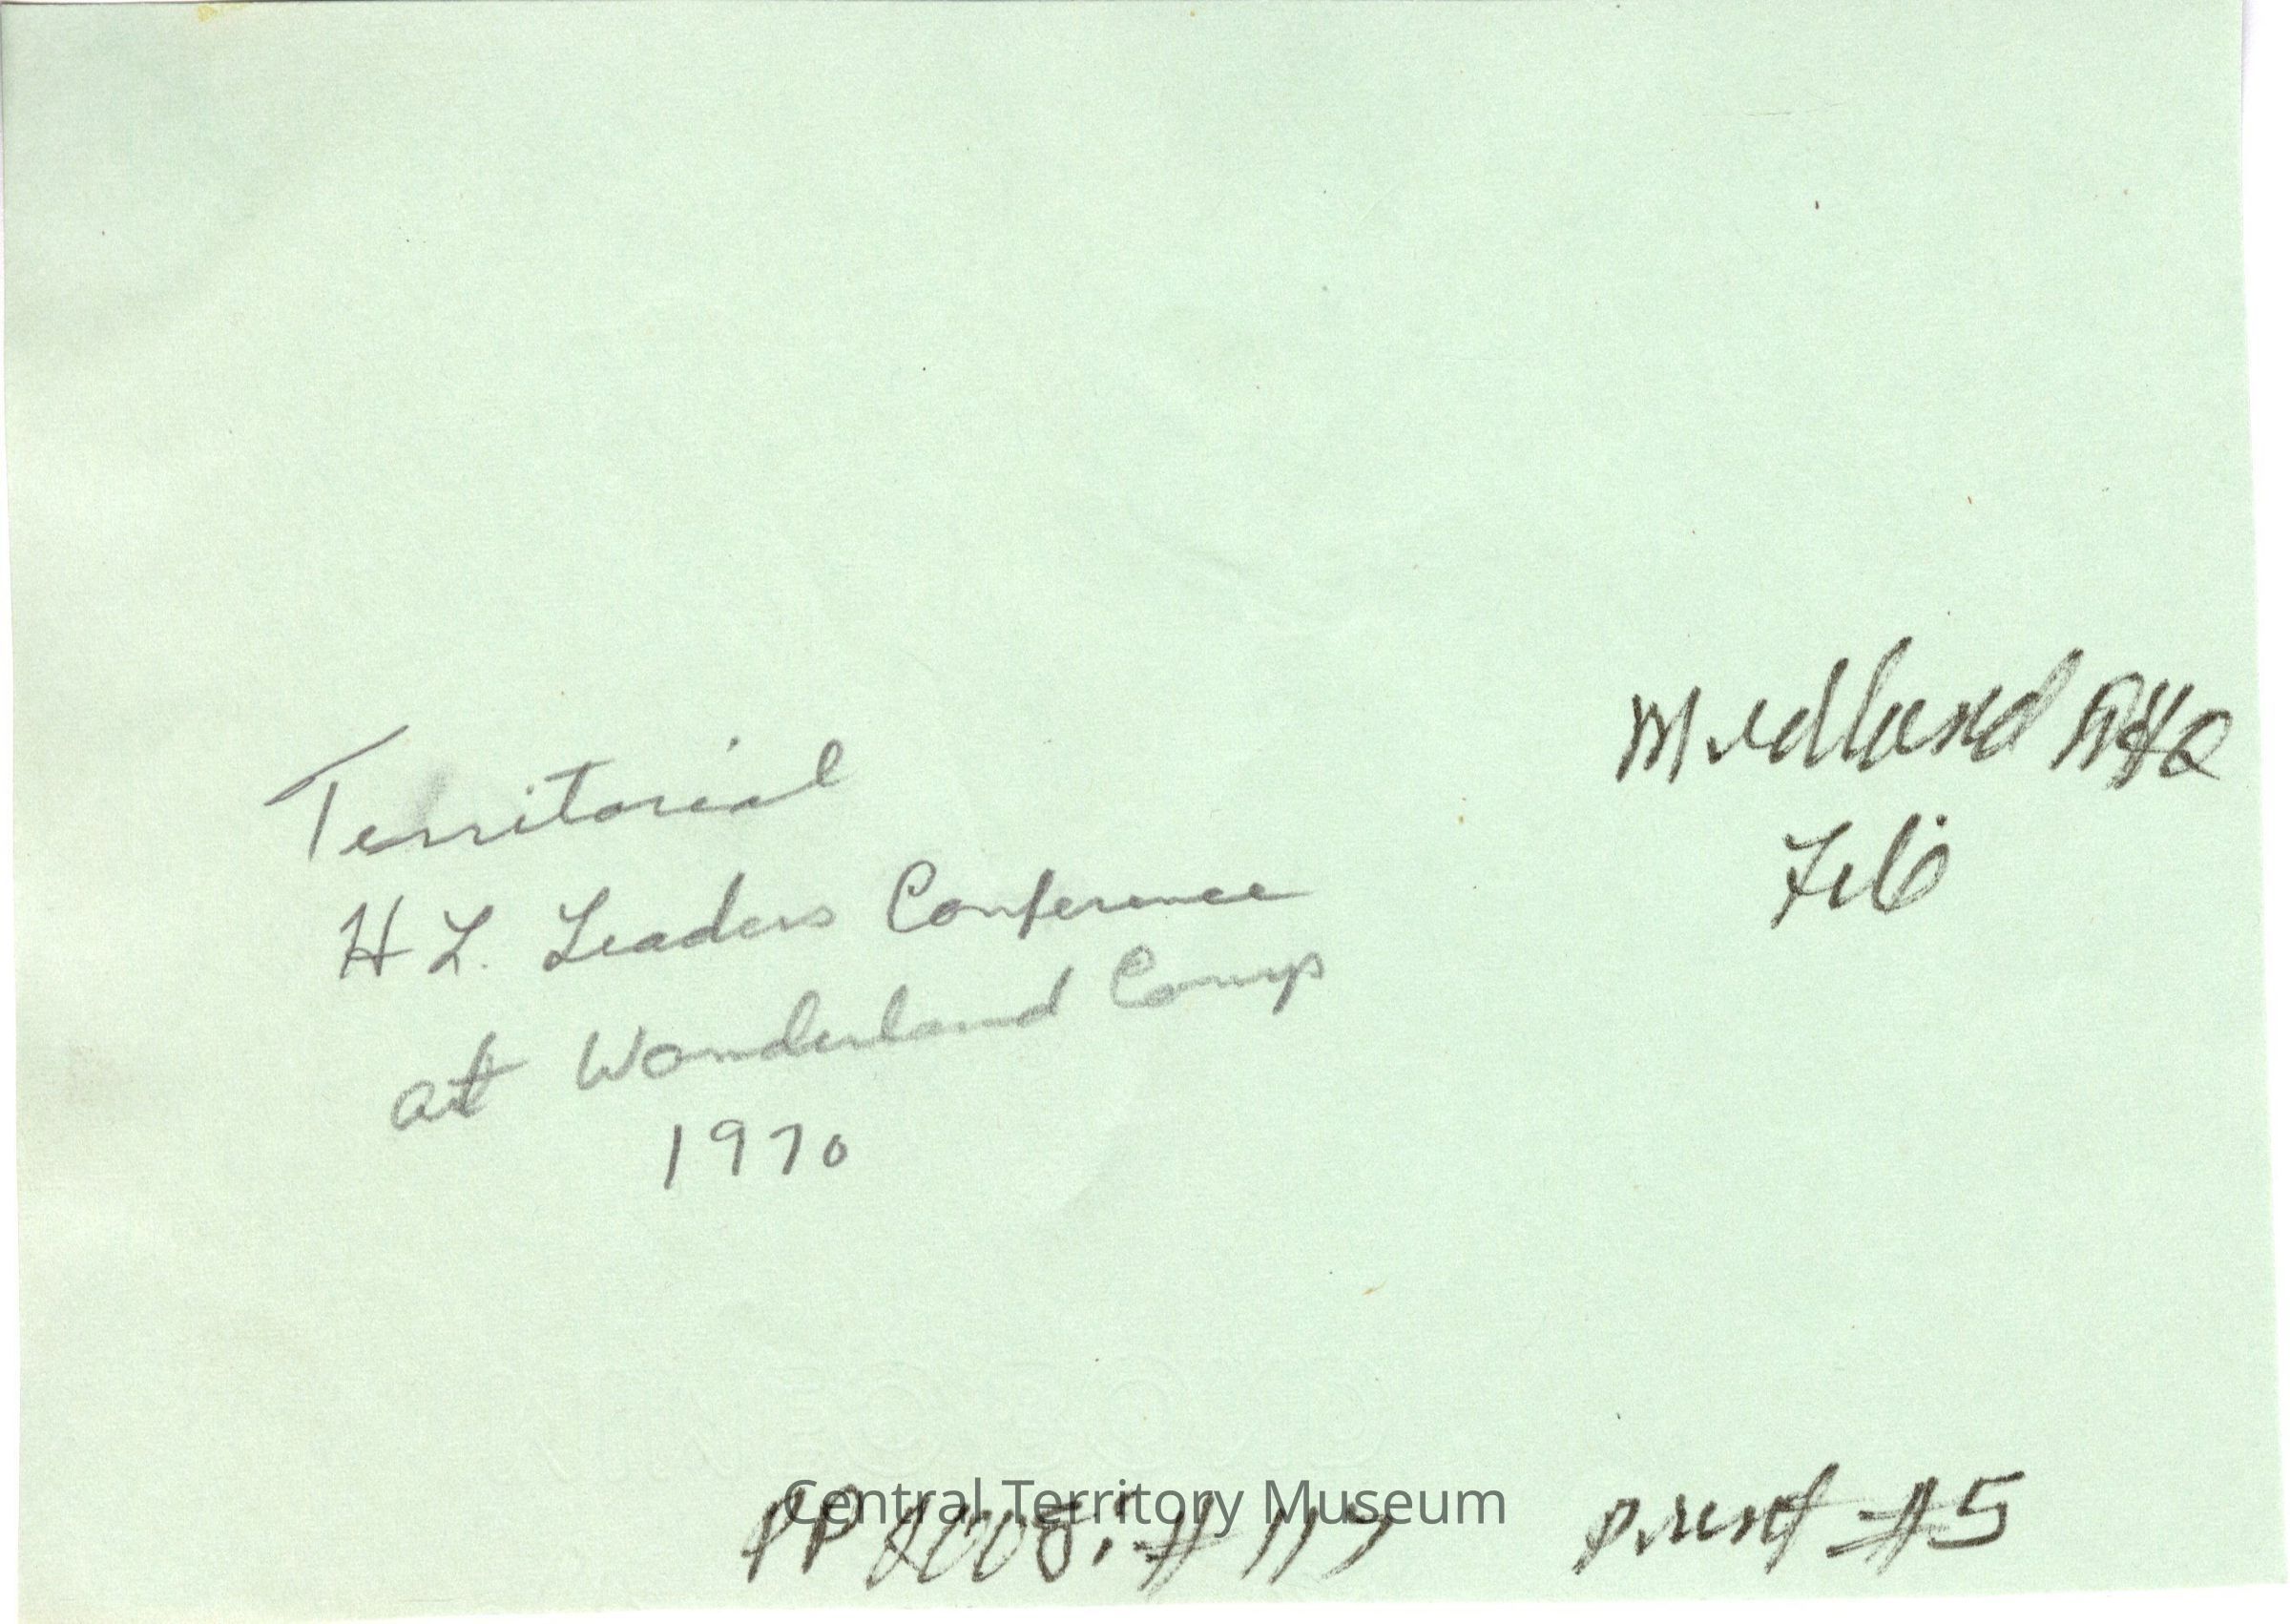 Territorial
H L. Leaders Conference
at Wonderland Camp
1970
Midland DHQ
Feb
Central Territory Museum
PP 2008: # 117
print #5